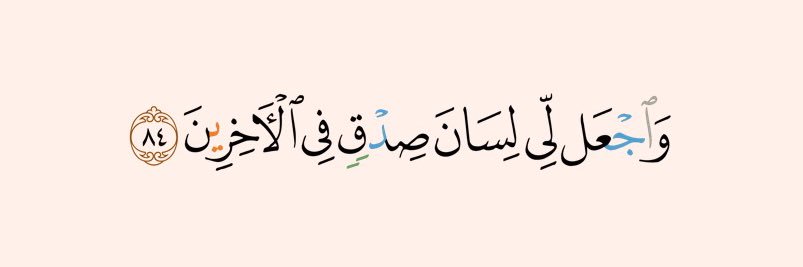 وَٱجۡعَل لِّي لِسَانَ صِدۡقٖ فِي ٱلۡأٓخِرِينَ ٨٤